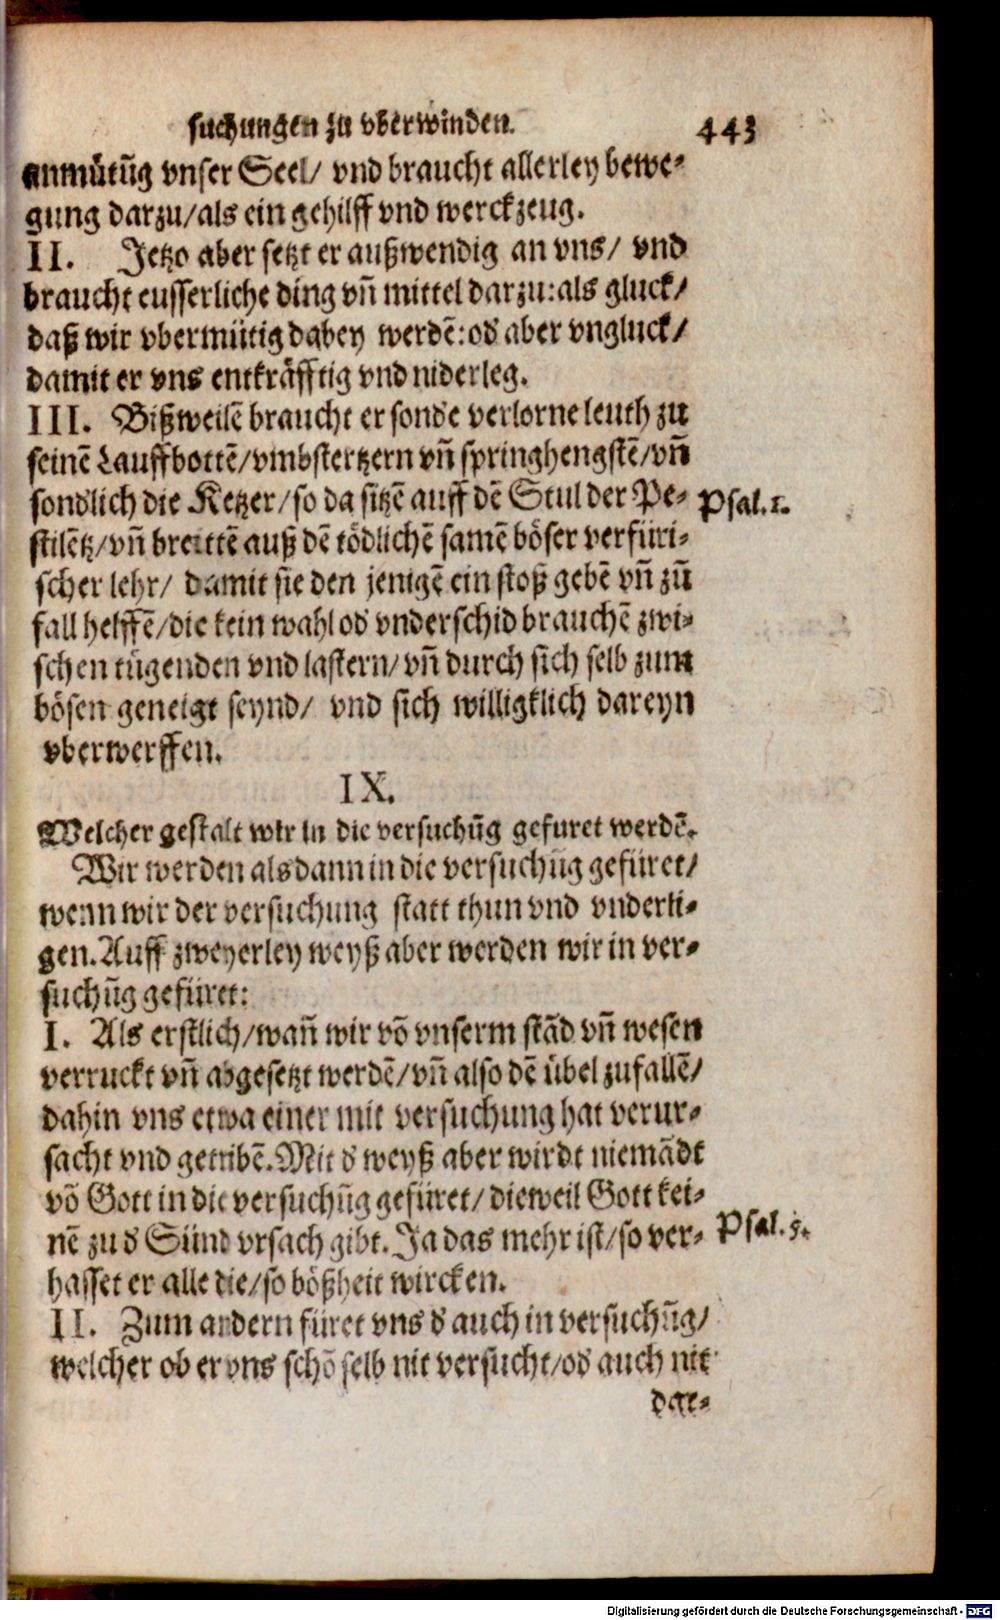 suchungen zu vberwinden. 443
anmütũg vnser Seel/ vnd braucht allerley bewe-
gung darzu/als ein gehilff vnd werckzeug.
II. Jetzo aber setzt er außwendig an vns/ vnd
braucht eusserliche ding vñ mittel darzu:als gluck/
daß wir vbermütig dabey werdẽ:od' aber vngluck/
damit er vns entkräfftig vnd niderleg.
III. Bißweilẽ braucht er sond'e verlorne leuth zu
seinẽ Lauffbottẽ/vmbstertzern vñ springhengstẽ/vñ
sond'lich die Ketzer/so da sitzẽ auff dẽ Stul der Pe- Psal.1.
stilẽtz/vñ breittẽ auß dẽ tödlichẽ samẽ böser verfüri-
scher lehr/ damit sie den jenigẽ ein stoß gebẽ vñ zũ
fall helffẽ/die kein wahl od' vnderschid brauchẽ zwi-
schen tügenden vnd lastern/vñ durch sich selb zum
bösen geneigt seynd/ vnd sich willigklich dareyn
vberwerffen.
IX.
Welcher gestalt wir in die versuchũg gefuret werdẽ.
Wir werden alsdann in die versuchũg gefüret/
wenn wir der versuchung statt thun vnd vnderli-
gen.Auff zweyerley weyß aber werden wir in ver-
suchũg gefüret:
I. Als erstlich/wañ wir võ vnserm stãd vñ wesen
verruckt vñ abgesetzt werdẽ/vñ also dẽ übel zufallẽ/
dahin vns etwa einer mit versuchung hat verur-
sacht vnd getribẽ.Mit d' weyß aber wirdt niemãdt
võ Gott in die versuchũg gefüret/dieweil Gott kei-
nẽ zu d' Sünd vrsach gibt.Ja das mehr ist/so ver- Psal.5.
hasset er alle die/so bößheit wircken.
II. Zum andern füret vns d' auch in versuchũg/
welcher ob er vns schõ selb nit versucht/od' auch nit
dar-
Digitalisierung gefördert durch die Deutsche Forschungsgemeinschaft - DFG